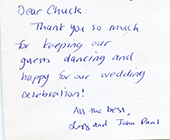 Dear Chuck:
Thank you so much
for keeping our
guests dancing and
happy for our wedding
celebration!
All the best,
and John Paul